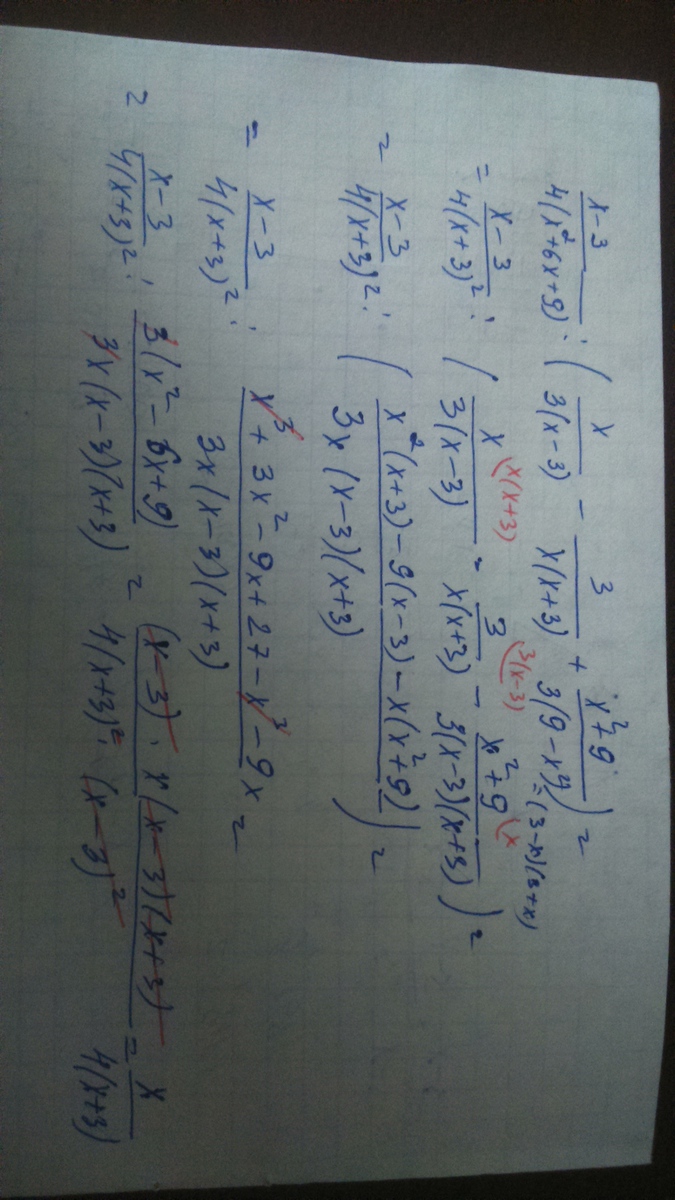 x-3/4(x²+6x+9) : (x/3(x-3) - 3/x(x+3) + x²+9/3(9-x²)) =
=(3-x)(3+x)
= x-3/4(x+3)² : (x/3(x-3) - 3/x(x+3) - x²+9/3(x-3)(x+3)) =
x(x+3) 3(x-3) x
= x-3/4(x+3)² : (x²(x+3)-9(x-3)-x(x²+9)/3x(x-3)(x+3)) =
= x-3/4(x+3)² : x³+3x²-9x+27-x³-9x/3x(x-3)(x+3) =
= x-3/4(x+3)² : 3(x²-6x+9)/3x(x-3)(x+3) = (x-3)·x(x-3)(x+3)/4(x+3)²·(x-3)² = x/4(x+3)